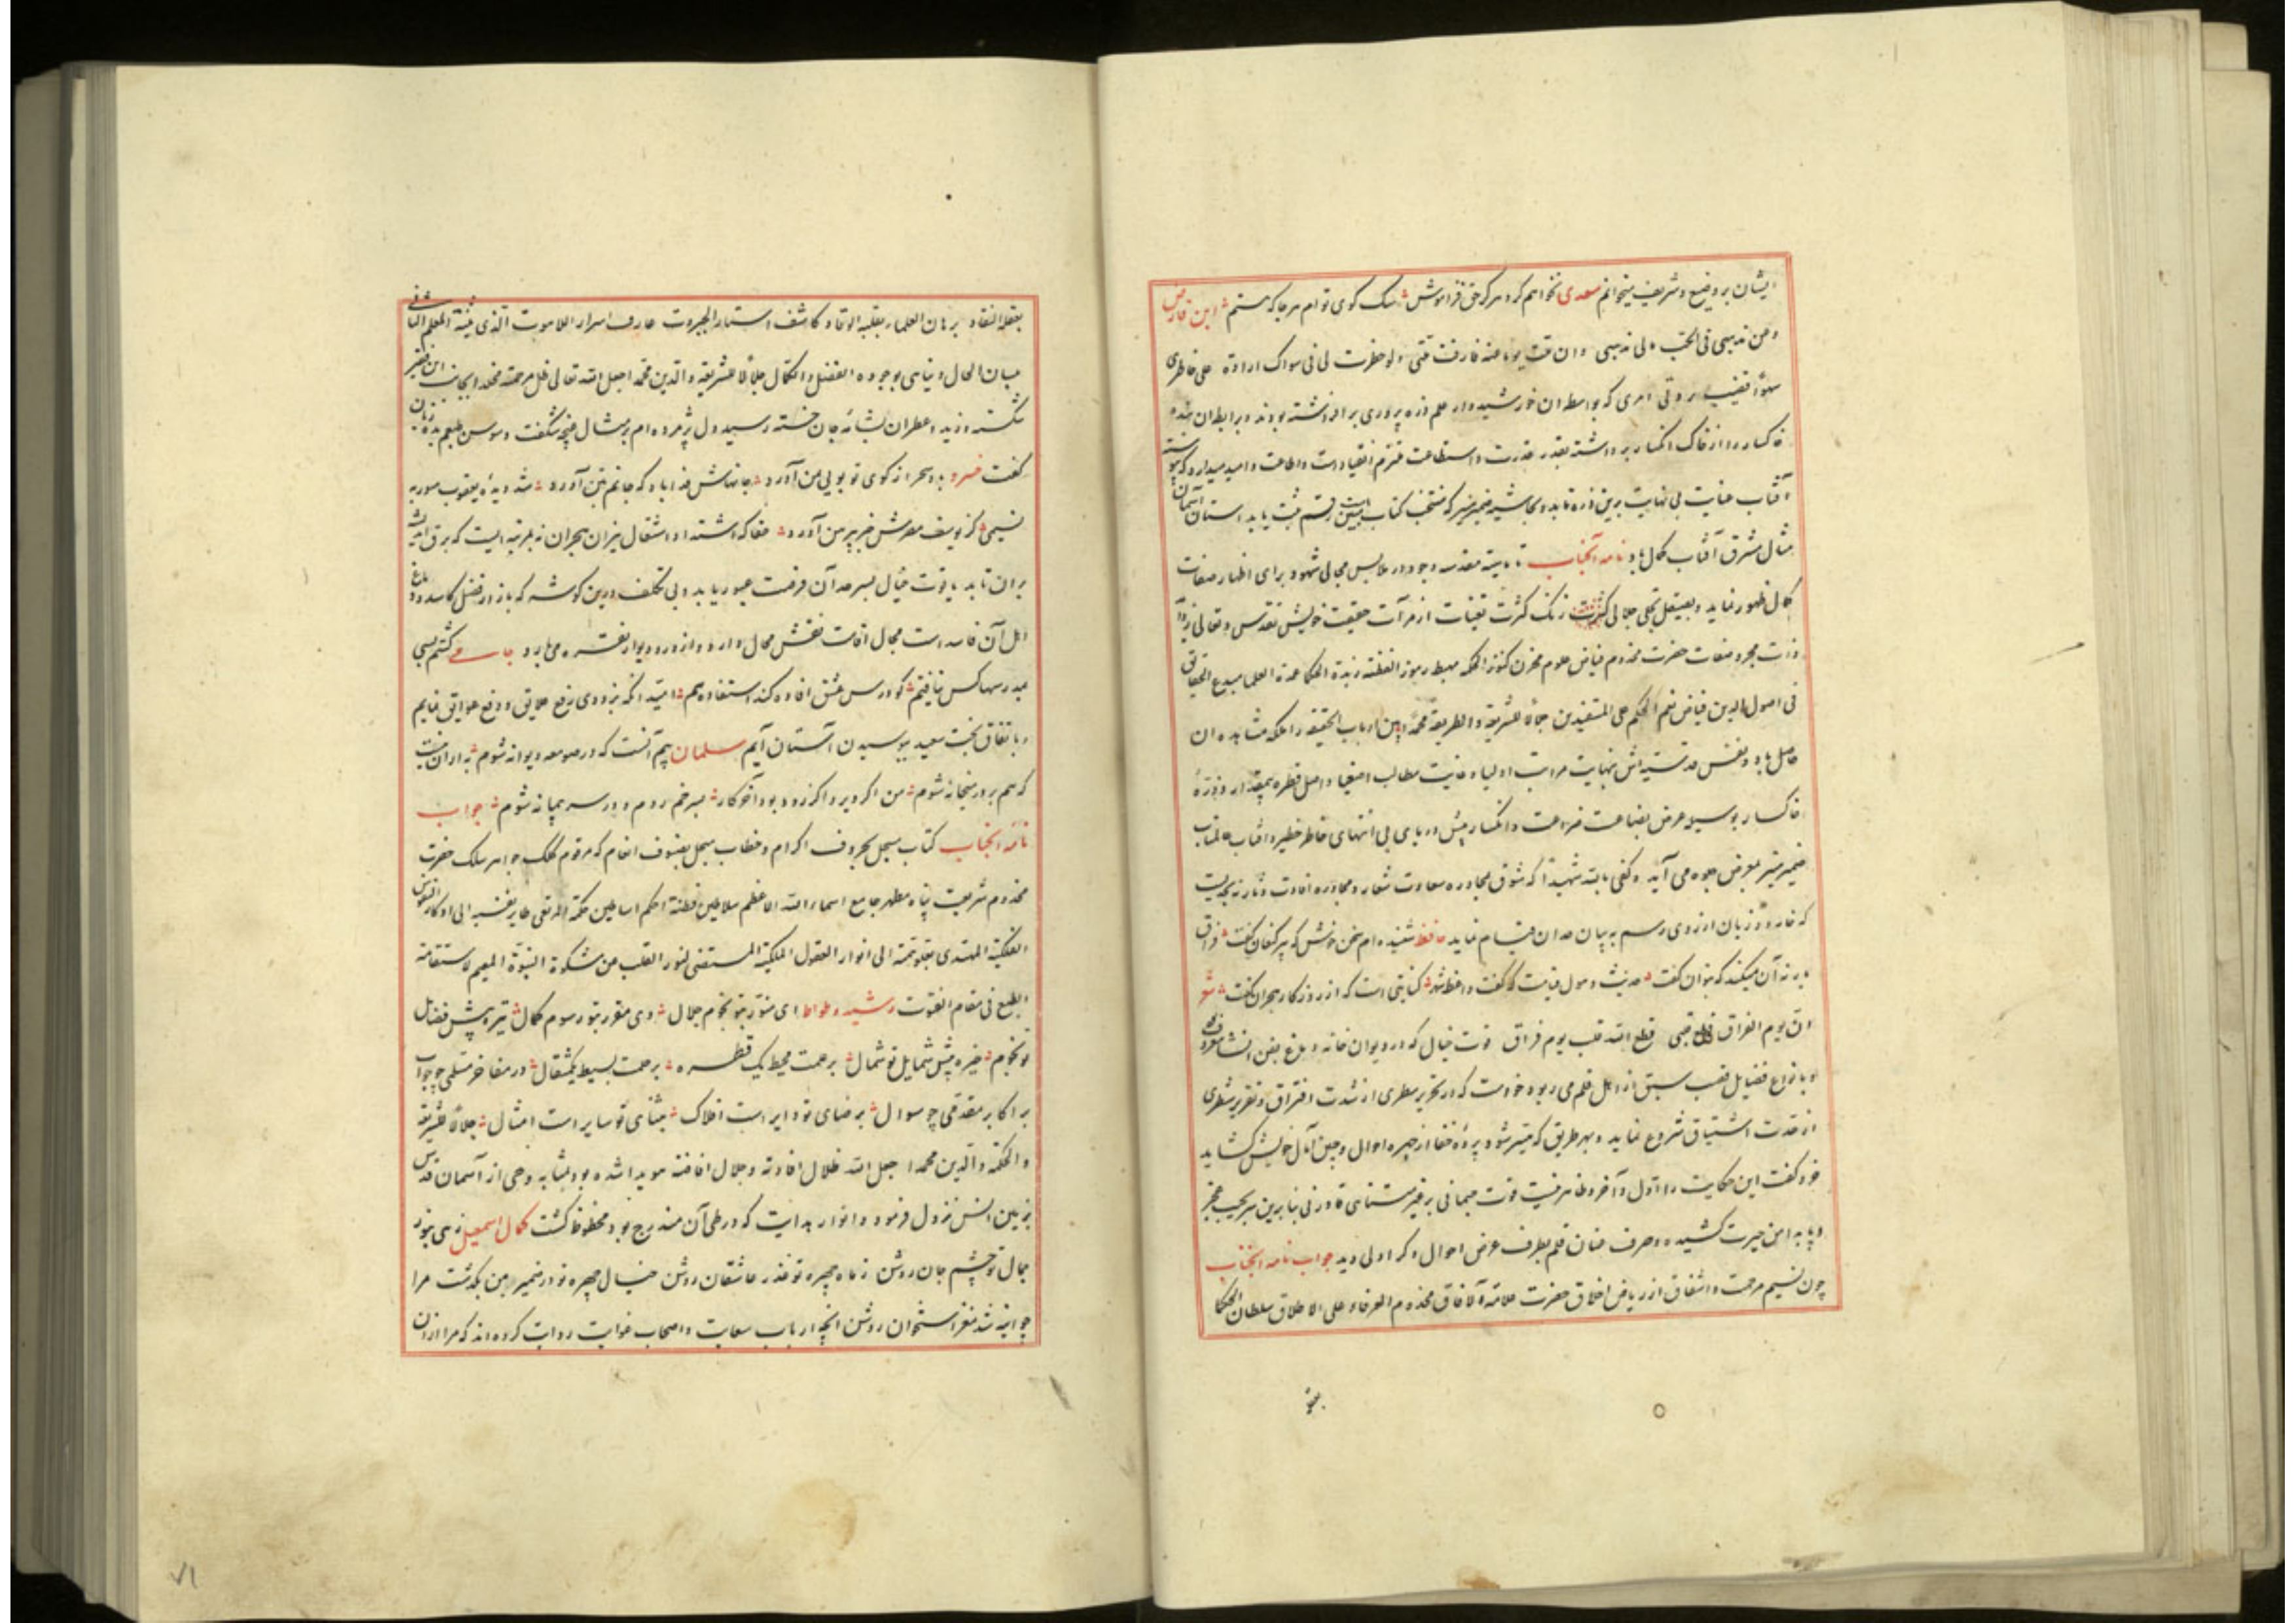 ایشان بر وضیع و شریف میخوانم سعدی نخواهم کرد هرگز حق فراموش سک کوی توام هر جا که هستم ابن فارض
و من مذهبی فی الحب ما لی مذهبی وان ملت یوما عنه فارقت ملتی ولو خطرت لی فی سواک ارادة علی خاطری
سهوا قضیت بردتی امری که بواسطه ان خورشیدوار علم ذره پروری برافراشته بودند و برابطه ان بنده
خاکسار را از خاک انکسار برداشته بقدر قدرت و استطاعت ملتزم انقیاد است و اطاعت و امید میدارد که پیوسته
آفتاب عنایت بی نهایت برین ذره تابد و بحاشیه ضمیر منیر که منتخب کتاب مبین است رقم ثبت یابد استان آسمان
مثال مشرق آفتاب کمال باد نامه آنجناب تا مقدسه وجود در ملابس مجالی شهود برای اظهار صفات
کمال ظهور نماید و بصیقل تجلی جلالی کثرت زنک کثرت تعینات از مرآت حقیقت خویش تقدس و تعالی
ذات مجرد صفات حضرت مخدوم فیاض علوم مخزن کنوز الحکمه مهبط رموز الفطنه زبدة الحکما عمدة العلما مبدع الحقایق
فی اصول الدین فیاض نعم الحکم علی المستفیدین جلالا للشریعة والطریقة محمدا و این ارباب الحقیقه را ملکه مشاهده ان
حاصل باد و نفس قدسیه اش بنهایت مراتب اولیا و غایت مطالب اصفیا واصل قطره بیمقدار و ذره
خاکسار بوسیله عرض بضاعت ضراعت و انکسار پیش دریای بی انتهای خاطر خطیر و افتاب عالمتاب
ضمیر منیر بمعرض جلوه می آید و کفی بالله شهیدا که شوق مجاوره سعادت شعار و محاوره افادت دثار نه بحدیست
که خامه دو زبان از روی رسم به بیان صد ان قیام نماید حافظ شنیده ام سخن خوش که پیر کنعان کفت فراق
یار نه آن میکند که بتوان کفت حدیث هول قیامت که کفت واعظ شهر کنایتی است که از روزکار هجران کفت شعر
ان یوم الفراق قطع قلبی قطع الله قلب یوم فراق قوت خیال که در دیوان خانه دماغ بفن انشا معروف
و بانواع فضایل قصب سبق از اهل قلم می ربود خواست که در تحریر سطری از شدت افتراق و تقریر شطری
از حدت اشتیاق شروع نماید و بهر طریق که میسر شود پرده خفا از چهره احوال و جبین آمال خویش کشاید
خرد کفت این حکایت را اول و آخر و ظاهر نیست قوت جسمانی بر غیر متناهی قادر نی بنابرین سر بجیب عجز
و پا بدامن حیرت کشیده و صرف عنان قلم بطرف عرض احوال دکر اولی دید جواب نامه انجناب
چون نسیم مرحمت و اشفاق از ریاض اخلاق حضرت علامة الافاق مخدوم العرفاء علی الاطلاق سلطان الحکما
بعقله النقاد برهان العلماء بقلبه الوقاد کاشف استار الجبروت عارف اسرار اللاهوت الذی المعلم الثانی
بیان الحال و نیاهی بوجوده الفضل والکمال جلالا للشریعة والدین محمد اجعل الله تعالی ظل مرحمته مخلدا بجانب این فقیر
شکسته وزید و عطر ان بمشام جان خسته رسید دل پژمرده ام بر مثال غنچه شکفت و سوسن طبعم بده زبان
کفت خسرو باد سحر از کوی تو بویی من آورد جانهاش فدا باد که جانم بتن آورد شد دیده یعقوب منور به
نسیمی کز یوسف مصرش خبر پیرهن آورد حقا که اشتداد اشتعال نیران هجران نه بمرتبه ایست که برق اندیشه
بران تابد یا قوت خیال بسرحد آن فرصت عبور یابد و بی تکلف درین کوشه که بازار فضل کاسد و دماغ
اهل آن فاسد است مجال اقامت نقش محال دارد و از در و دیوار نفرت می بارد جامی کشتم بسی
بمدرسها کس نیافتم کو درس عشق افاده کند استفاده هم امید انکه بزودی رفع علایق و دفع عوایق نمایم
و باتفاق بخت سعید ببوسیدن آستان آیم سلمان بیم آنست که در صومعه دیوانه شوم به ازان نیست
که هم بر در میخانه شوم من اکر دیر و اکر زود بود آخر کار بسر خم روم و در سر پیمانه شوم جواب
نامه انجناب کتاب مسجل بحروف اکرام و خطاب مبجل بصنوف انعام که مرقوم کلک جواهر سلک حضرت
مخدوم شریعت پناه مظهر جامع اسماء الله الاعظم سلاطین فطنة احکم اساطین حکمة المرتقی طایر نفسه الی اوکار النفوس
الفلکیة المهتدی بقلوتمة الی انوار العقول الملکیة المستضئ لنور القلب من مشکوة النبوة المقیم لاستقامة
الطبع فی مقام الفتوت رشید وطواط ای منور بتو نجوم جلال وی مقرر بتو رسوم کمال تیره پیش فضایل
تو نجوم خیره پیش شمایل تو شمال برحمت محیط یک قطره برحمت بسیط یکمثقال در مفاخر مسلمی چو جواب
بر اکابر مقدمی چو سوال برضای تو دایر است افلاک بثنای تو سایر است امثال جلالا للشریعة
والحکمة والدین محمدا اجعل الله ظلال افادته وجلال افاضته مویدا شده بود بمثابه وحی از آسمان قدس
بزمین انس نزول فرمود و انوار هدایت که در طی آن مندرج بود محظوظ کشت کمال اسمعیل زهی بنور
جمال تو چشم جان روشن ز ماه چهره تو عذر عاشقان روشن خیال چهره تو در ضمیر من بکذشت مرا
چو اینه شد مغز استخوان روشن انچه ارباب سعایت و اصحاب غوایت روایت کرده اند که مرا ازان
بعقله
۷۱